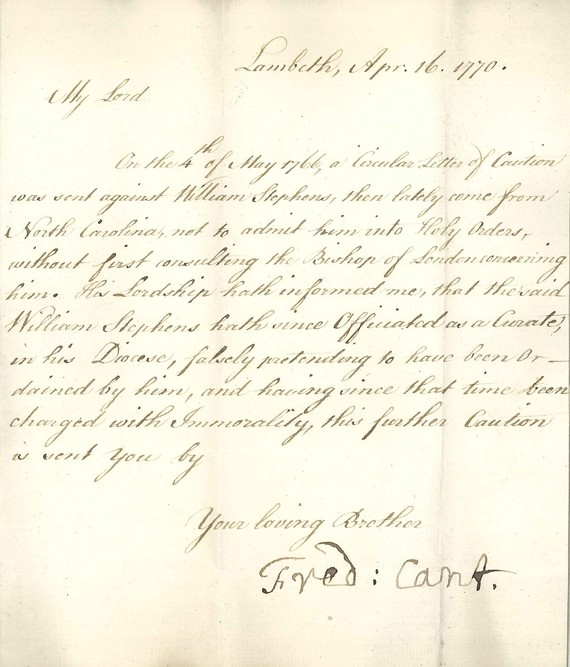 Lambeth, Apr. 16. 1770.
My Lord
On the 4th of May 1766, a Circular Letter of Caution
was sent against William Stephens, then lately come from
North Carolina, not to admit him into Holy Orders,
without first consulting the Bishop of London concerning
him. His Lordship hath informed me, that the said
William Stephens hath since Officiated as a Curate,
in his Diocese, falsely pretending to have been Or–
dained by him, and having since that time been
charged with Immorality, this further Caution
is sent You by
Your loving Brother
Fred: Cant.